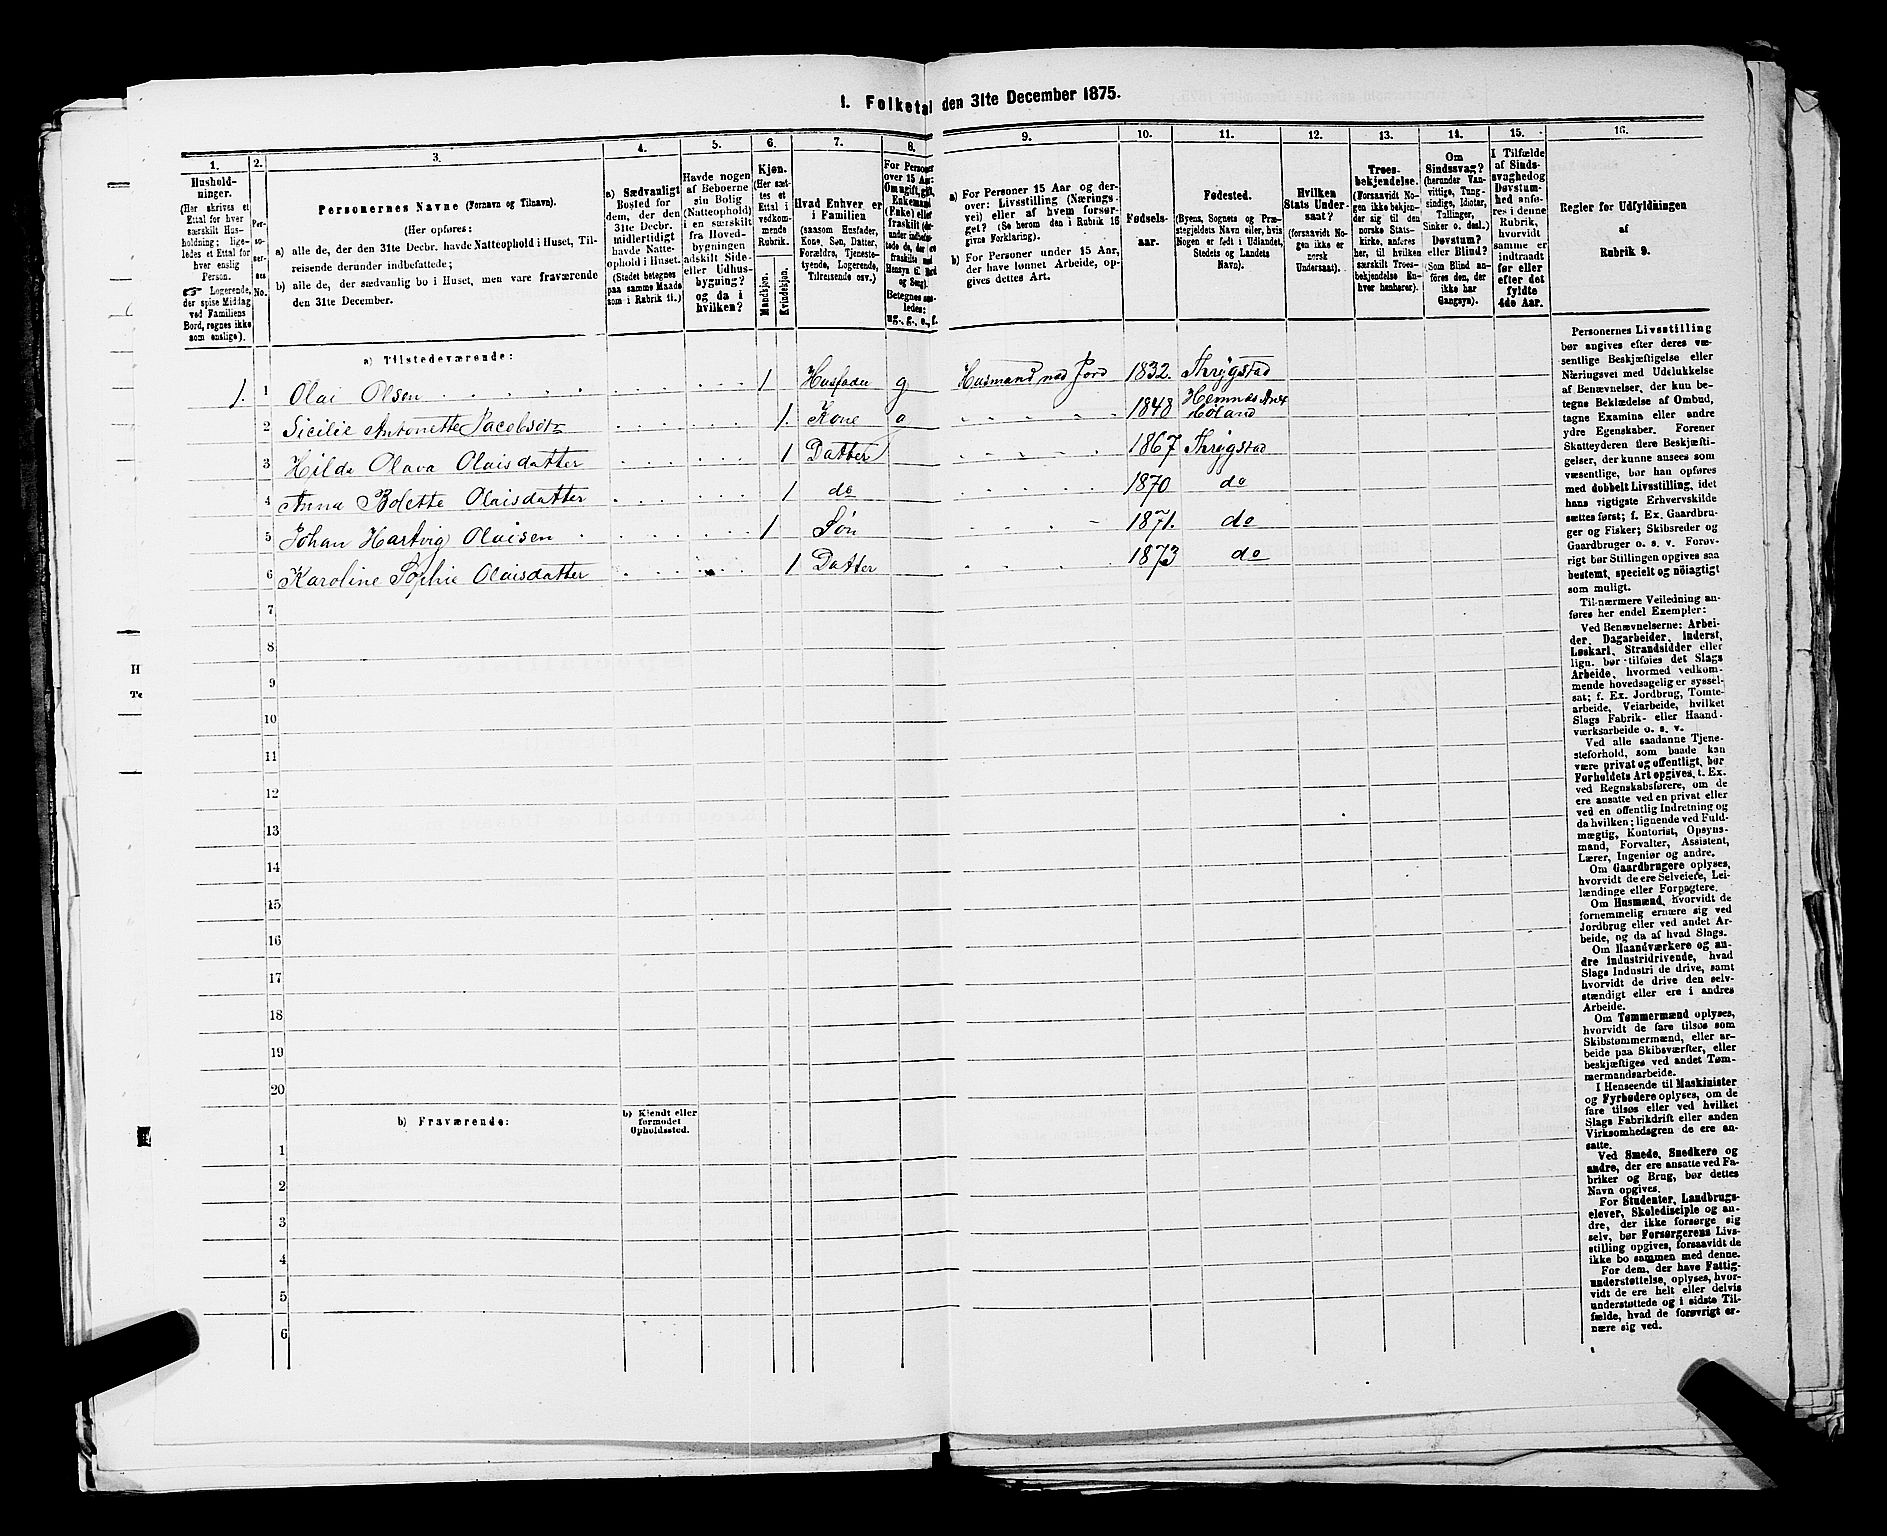 1. Folketal den 31te December 1875.
1.
Hushold-
ninger.
(Her skrives et
Ettal for hver
særskilt Hus-
holdning; lige-
ledes et Ettal for
hver enslig
Person.
☞ Logerende,
der spise Middag
ved Familiens
Bord, regnes ikke
som enslige).
2.
Per-
so-
nernes
No.
3.
Personernes Navne (Fornavn og Tilnavn).
(Her opføres:
a) alle de, der den 31te Decbr. havde Natteophold i Huset, Til-
reisende derunder indbefattede;
b) alle de, der sædvanlig bo i Huset, men vare fraværende
den 31te December.
4.
a) Sædvanligt
Bosted for
dem, der den
31te Decbr.
midlertidigt
havde Natte-
ophold i Huset.
(Stedet betegnes
paa samme Maade
som i Rubrik 11.)
5.
Havde nogen
af Beboerne
sin Bolig
(Natteophold)
i en særskilt
fra Hoved-
bygningen
adskilt Side-
eller Udhus-
bygning?
og da i
hvilken?
6.
Kjøn.
(Her sæt-
tes et
Ettal i
vedkom-
mende
Rubrik.
Mandkjøn.
Kvindekjøn.
7.
Hvad Enhver er
i Familien
(saasom Husfader,
Kone, Søn, Datter,
Forældre, Tjeneste-
tyende, Logerende,
Tilreisende osv.)
8.
For Personer
over 15 Aar:
Om ugift, gift,
Enkemand
(Enke) eller
fraskilt
Betegnes saa-
ledes:
ug., g., e., f.
9.
a) For Personer 15 Aar og der-
over: Livsstilling (Nærings-
vei) eller af hvem forsør-
get? (Se herom den i Rubrik 16
givne Forklaring).
b) For Personer under 15 Aar,
der have lønnet Arbeide, op-
gives dettes Art.
10.
Fødsels-
aar.
11.
Fødested.
(Byens, Sognets og Præ-
stegjeldets Navn eller, hvis
Nogen er født i Udlandet,
Stedets og Landets
Navn).
12.
Hvilken
Stats Under-
saat?
(forsaavidt No-
gen ikke er
norsk
Undersaat).
13.
Troes-
bekjendelse.
(Forsaavidt No-
gen ikke bekjen-
der sig til den
norske Stats-
kirke, anføres
her, til hvilken
særskilt Troes-
bekjendelse En-
hver henhører).
14.
Om
Sindssvag?
(herunder Van-
vittige, Tung-
sindige, Idioter,
Tullinger,
Sinker o. desl.)
Døvstum?
eller Blind?
(Som Blind an-
føres den, der
ikke har
Gangsyn).
15.
I Tilfælde
af Sinds-
svaghed og
Døvstum-
hed anfø-
res i denne
Rubrik,
hvorvidt
samme er
indtraadt
før eller
efter det
fyldte
4de Aar.
16.
Regler for Udfyldningen
af
Rubrik 9.
a) Tilstedeværende:
1. 1 Olai Olsen 1 Husfader g Husmand med Jord 1832. Thrygstad
2 Sicilie Antonette Jacobsdtr 1. Kone g 1848 Hemnæs Anex Høland
3 Hilda Olava Olaisdatter 1 Datter 1867 Thrygstad
4 Anna Bolette Olaisdatter 1 do 1870 do
5 Johan Hartvig Olaisen 1 Søn 1871. do
6 Karoline Sophie Olaisdatter 1 Datter 1873 do
7
8
9
10
11
12
13
14
15
16
17
18
19
20
b) Fraværende:
b) Kjendt eller
formodet
Opholdssted.
1
2
3
4
5
6
Personernes Livsstilling
bør angives efter deres væ-
sentlige Beskjæftigelse eller
Næringsvei med Udelukkelse
af Benævnelser, der kun be-
tegne Beklædelse af Ombud,
tagne Examina eller andre
ydre Egenskaber. Forener
Skatteyderen flere Beskjæfti-
gelser, der kunne ansees som
væsentlige, bør han opføres
med dobbelt Livsstilling, idet
hans vigtigste Erhvervskilde
sættes først; f. Ex. Gaardbru-
ger og Fisker; Skibsreder og
Gaardbruger o. s. v. Forøv-
rigt bør Stillingen opgives saa
bestemt, specielt og nöiagtigt
som muligt.
Til nærmere Veiledning an-
føres her endel Exempler:
Ved Benævnelserne: Arbei-
der, Dagarbeider, Inderst,
Løskarl, Strandsidder eller
lign. bør tilføies det Slags
Arbeide, hvormed vedkom-
mende hovedsagelig er syssel-
sat; f. Ex. Jordbrug, Tomte-
arbeide, Veiarbeide, hvilket
Slags Fabrik- eller Haand-
værksarbeide o. s. v.
Ved alle saadanne Tjene-
steforhold, som baade kan
være privat og offentligt, bør
Forholdets Art opgives, t. Ex.
ved Regnskabsførere, om de
ere ansatte ved en privat eller
ved en offentlig Indretning og
da hvilken; lignende ved Fuld-
mægtig, Kontorist, Opsyns-
mand, Forvalter, Assistent,
Lærer, Ingeniør og andre.
Om Gaardbrugere oplyses,
hvorvidt de ere Selveiere, Lei-
lændinge eller Forpagtere.
Om Husmænd, hvorvidt de
fornemmelig ernære sig ved
Jordbrug eller ved andet Ar-
beide, og da af hvad Slags.
Om Haandværkere og an-
dre industridrivende, hvad
Slags Industri de drive, samt
hvorvidt de drive den selv-
stændigt eller ere i andres
Arbeide.
Om Tømmermænd oplyses,
hvorvidt de fare tilsøs som
Skibstømmermænd, eller ar-
beide paa Skibsværfter, eller
beskjæftiges ved andet Tøm-
mermandsarbeide.
I Henseende til Maskinister
og Fyrbødere oplyses, om de
fare tilsøs eller ved hvilket
Slags Fabrikdrift eller anden
Virksomhedsgren de ere an-
satte.
Ved Smede, Snedkere og
andre, der ere ansatte ved Fa-
briker og Brug, bør dettes
Navn opgives.
For Studenter, Landbrugs-
elever, Skoledisciple og an-
dre, der ikke forsørge sig
selv, bør Forsørgerens Livs-
stilling opgives, forsaavidt de
ikke bo sammen med denne.
For dem, der have Fattig-
understøttelse, oplyses, hvor-
vidt de ere helt eller delvis
understøttede og i sidste Til-
fælde, hvad de forøvrigt er-
nære sig ved.